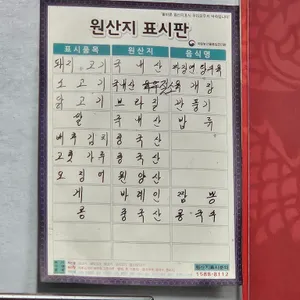 원산지 표시판
표시품목 원산지 음식명
돼지고기 국내산 짜장면 탕수육
소고기 국내산 육우 육개장
닭고기 브라질 깐풍기
쌀 국내산 밥류
배추김치 중국산
고춧가루 중국산
오징어 원양산
게 바레인 짬뽕
콩 중국산 콩국수
원산지표시문의
1588-8112